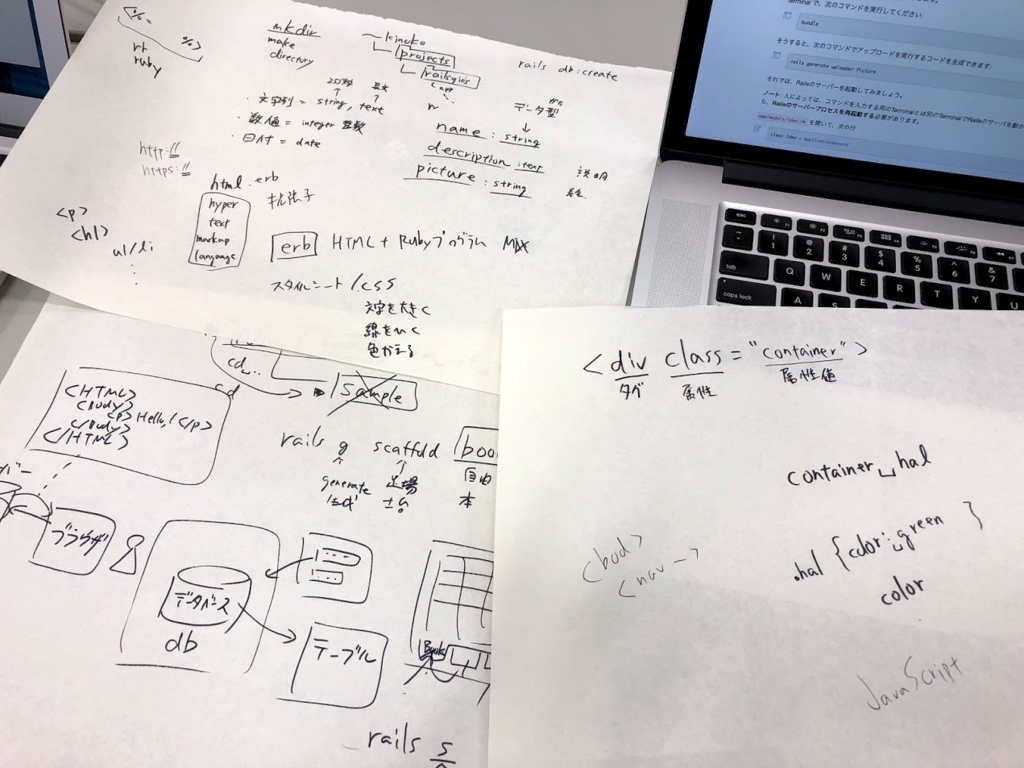 <%=
%>
rb
ruby
mkdir
make
directory
kinoko
projects
railsgirls
app
rails db:create
255文字
最大
・文字列 = string, text
・数値 = integer 整数
・日付 = date
から
データ型
name : string
description : text
picture : string
説明
http://
https://
html.erb
拡張子
hyper
text
markup
language
<p>
<h1>
ul/li
erb HTML + Rubyプログラム MIX
スタイルシート/CSS
文字を大きく
線をひく
色かえる
Terminal で、次のコマンドを実行してください:
bundle
そうすると、次のコマンドでアップロードを実行するコードを生成できます:
rails generate uploader Picture
それでは、Railsのサーバーを起動してみましょう。
ノート: 人によっては、コマンドを入力する用のTerminalとは別のTerminalでRailsのサーバを動か
ら、Railsのサーバープロセスを再起動する必要があります。
app/models/idea.rb を開いて、次の行
class Idea < ApplicationRecord
esc
tab
caps lock
Q W E R T Y
A S
cd ..
cd
sample
<HTML>
<body>
<p>Hello!</p>
</body>
</HTML>
rails g scaffold boo
generate
生成
足場
自由
本
バー
ブラウザ
データベース
db
テーブル
Books
rails s
<div class="container">
タグ 属性 属性値
container␣hal
.hal {color:␣green }
color
<body>
<nav ->
JavaScript